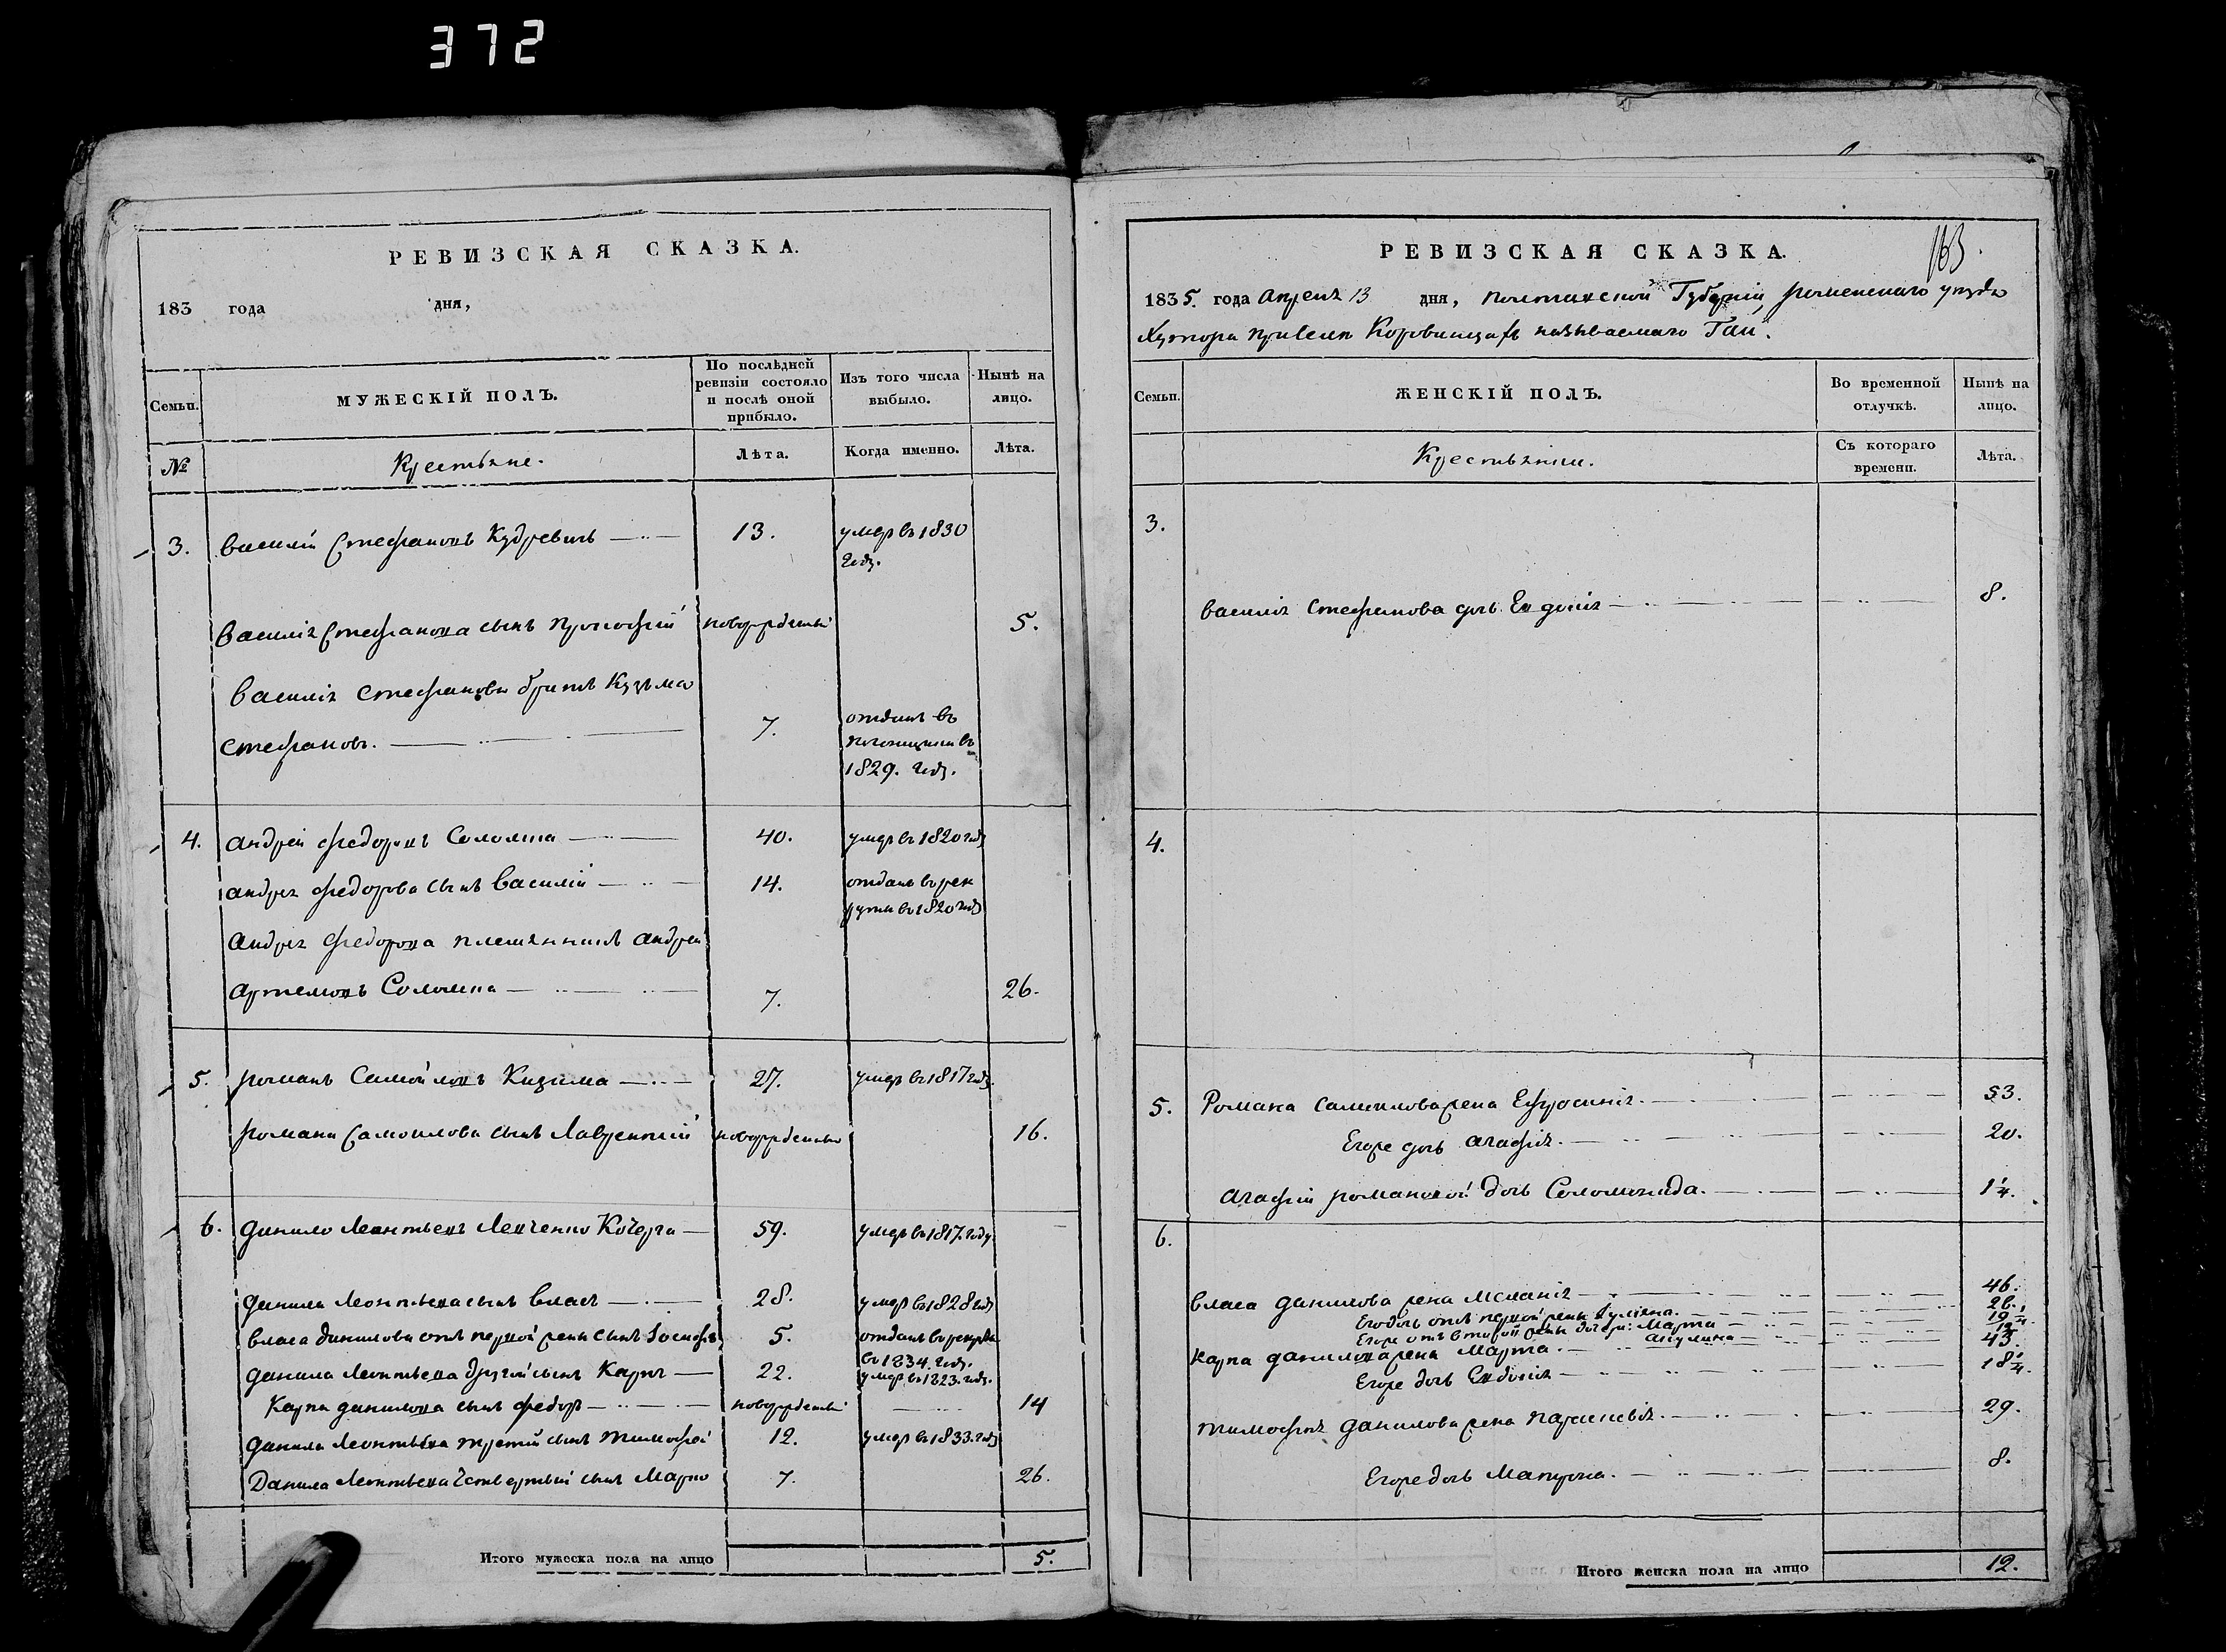 372
РЕВИЗСКАЯ СКАЗКА.
183 года дня,
Семьи.
МУЖЕСКІЙ ПОЛЪ.
По послѣдней ревизіи состояло и послѣ оной прибыло.
Изъ того числа выбыло.
Нынѣ на лицо.
№
Крестьяне.
Лѣта.
Когда именно.
Лѣта.
3. Василій Стефановъ Кудревичь 13. умеръ въ 1830
году.
Василія Стефанова сынъ Прокофій новорожденный 5.
Василія Стефанова братъ Кузьма
Стефановъ. 7. отданъ въ
въ
1829. году.
4. Андрей Федоровъ Соломка 40. умеръ въ 1820 году
Андрея Федорова сынъ Василій 14. отданъ въ рек
руты въ 1820 году
Андрея Федорова племянникъ Андрей
Артемовъ Соломка 7. 26.
5. Романъ Самойловъ Кизима 27. умеръ въ 1817 году.
Романа Самойлова сынъ Лаврентій новорожденный 16.
6. Данило Леонтьевъ Левченко Кочерга 59. умеръ въ 1817. году.
Данила Леонтьева сынъ Власъ 28. умеръ въ 1828 году
Власа Данилова отъ первой жены сынъ Іосифъ 5. отданъ въ рекруты
въ 1834. году.
Данила Леонтьева другой сынъ Карпъ 22. умеръ въ 1823. году.
Карпа Данилова сынъ Федоръ новорожденный 14
Данила Леонтьева третій сынъ Тимофей 12. умеръ въ 1833. году
Данила Леонтьева Четвертый сынъ Марко 7. 26.
Итого мужеска пола на лицо 5.
163.
РЕВИЗСКАЯ СКАЗКА.
1835. года Апреля 13 дня, Полтавской Губерніи, роменскаго уезда
Хутора при селе Коровинцахъ называемаго Гай.
Семьи.
ЖЕНСКІЙ ПОЛЪ.
Во временной отлучкѣ.
Нынѣ на лицо.
Крестьянки.
Съ котораго времени.
Лѣта.
3.
Василія Стефанова дочь Евдокія 8.
4.
5. Романа Самойлова жена Ефросинія. 53.
Егоже дочь Агафія. 20.
Агафіи Романовой дочь Соломонида. 1¼.
6.
Власа Данилова жена Меланія 46.
Его дочь отъ первой жены 26.
Егоже отъ второй жены дочери: Марта 19
Акулина 12
Карпа Данилова жена Марта. 43.
Егоже дочь Евдокія 18¼.
Тимофея Данилова жена Параскевія. 29.
Егоже дочь Матрона. 8.
Итого женска пола на лицо 12.